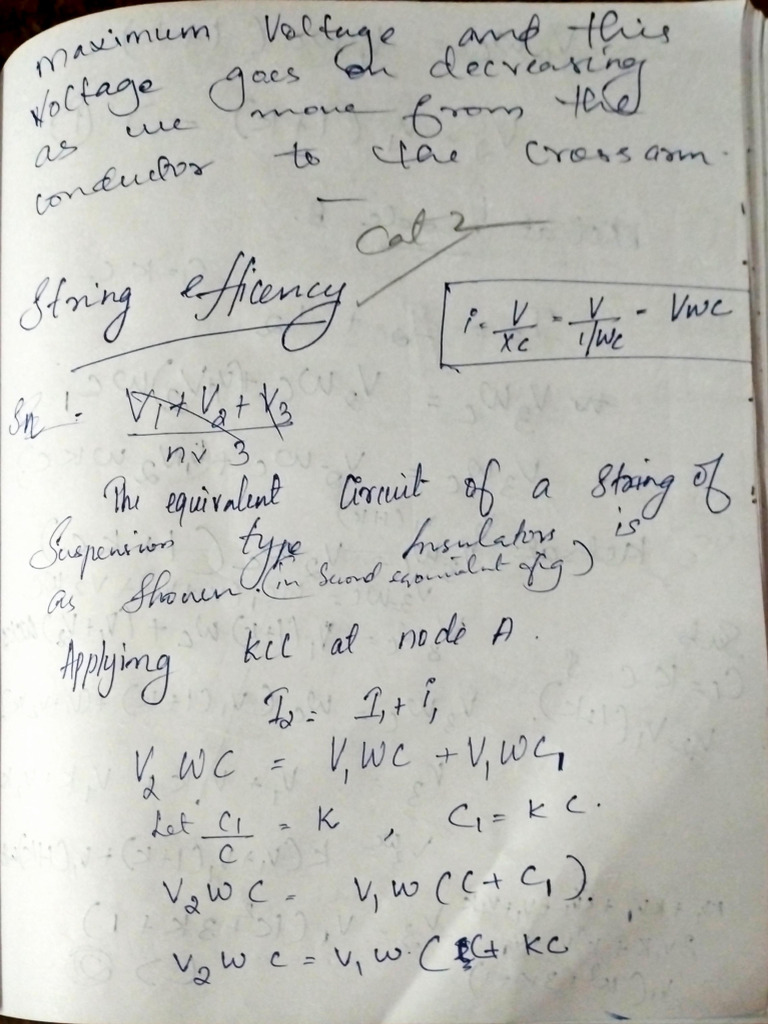 maximum voltage and this
voltage goes on decreasing
as we move from the
conductor to the crossarm.
Cat 2
String efficency
i = V/Xc = V/1/wc = VWC
V1 + V2 + V3 / 3
The equivalent Circuit of a String of
Suspension type Insulators is
as Shown. (in Second equivalent fig)
Applying KCL at node A.
I2 = I1 + i1
V2 WC = V1WC + V1WC1
Let C1/C = K , C1 = KC.
V2WC = V1W (C + C1).
V2WC = V1W. (C + KC